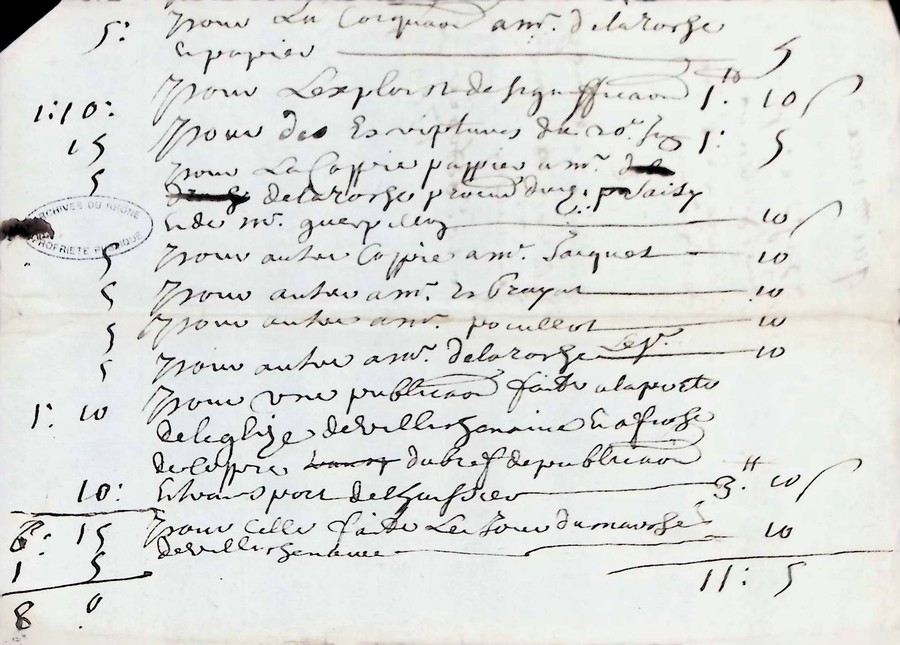 5: pour La Coppie a mr. delaroche
en papier 5
1:10: pour L'exploit de signiffication 1tt 10
15 pour des Escriptures du 20e. 1: 5
5 pour La Coppie pappier a mr.
delaroche
et de mr. guerpillon 10
5 pour autre Coppie a mr. Jacquet 10
5 pour autre a mr. 10
5 pour autre a mr. pouillot 10
5 pour autre a mr. delaroche 10
1: 10 pour une publication faitte a la porte
de leglize de villefranche et afiche
de Coppie du bref de publication
10: et transport de lhuissier 3tt 10
6: 15 pour celle faitte Le Jour du marché 10
1 5 de villefranche
8 0 11: 5
ARCHIVES DU RHONE
PROPRIETE PUBLIQUE